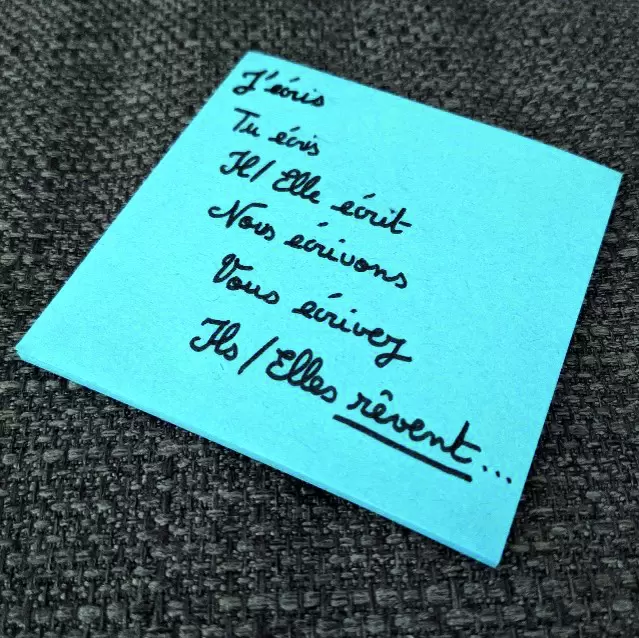 J'écris
Tu écris
Il/Elle écrit
Nous écrivons
Vous écrivez
Ils/Elles rêvent...